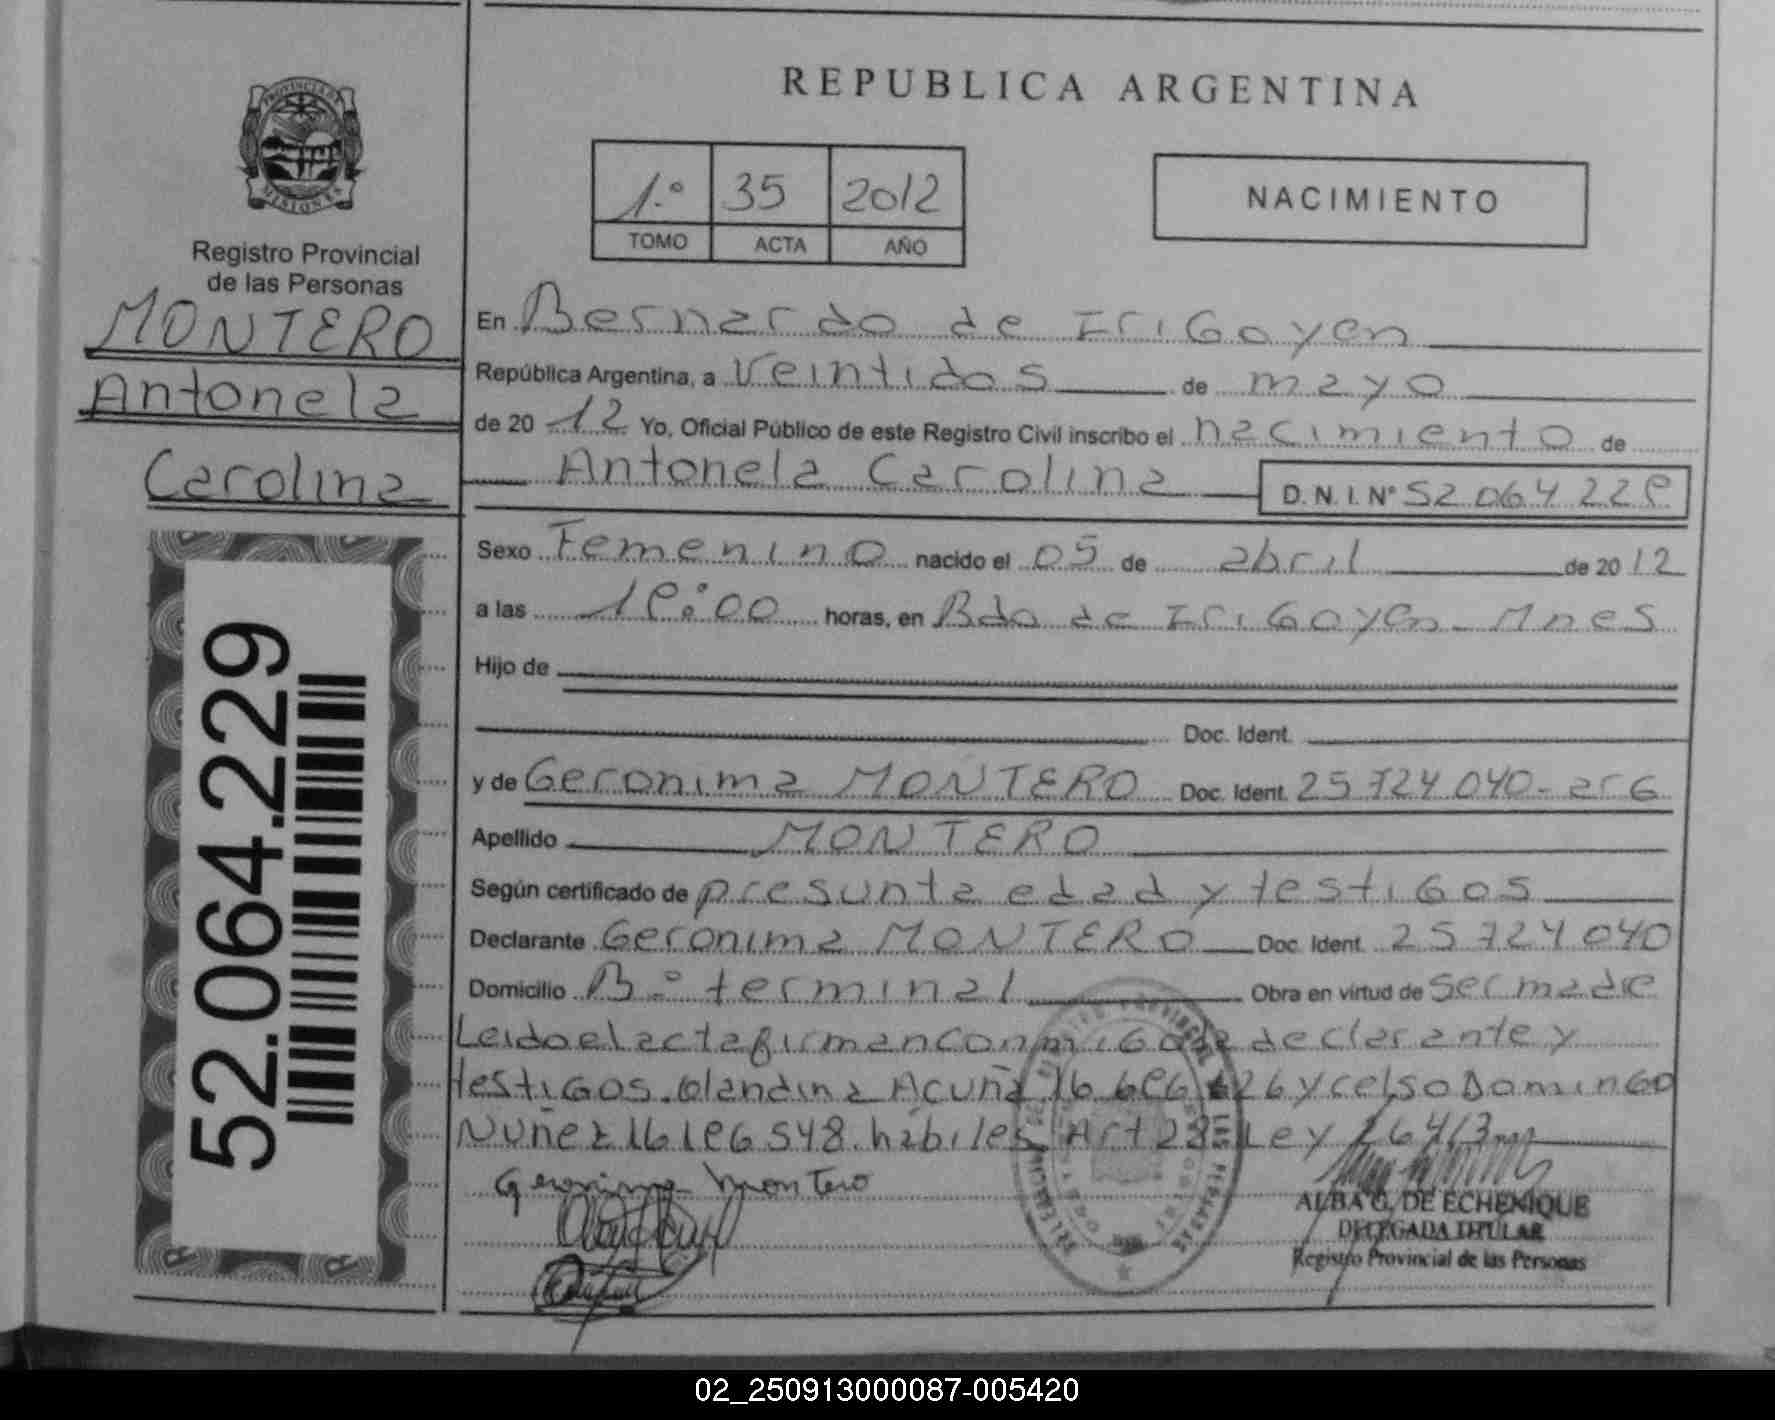 PROVINCIA DE
MISIONES
Registro Provincial
de las Personas
MONTERO
Antonela
Carolina
52.064.229
REPUBLICA ARGENTINA
1.º 35 2012
TOMO ACTA AÑO
NACIMIENTO
En Bernardo de Irigoyen
República Argentina, a veintidos de mayo
de 2012 Yo, Oficial Público de este Registro Civil inscribo el nacimiento de
Antonela Carolina D.N.I. Nº 52.064.229
Sexo Femenino nacido el 05 de abril de 2012
a las horas, en Bdo de Irigoyen - Mnes
Hijo de
Doc. Ident.
y de Geronima MONTERO Doc. Ident. 25 724 040 - arg
Apellido MONTERO
Según certificado de presunta edad y testigos
Declarante Geronima MONTERO Doc. Ident. 25 724 040
Domicilio Bº terminal Obra en virtud de ser madre
Leido el acta firman conmigo la declarante y
testigos. Blandina Acuña y celso Domingo
Nuñez habiles Art 28 Ley 26413
Geronima Montero
ALBA G. DE ECHENIQUE
DELEGADA TITULAR
Registro Provincial de las Personas
02_250913000087-005420